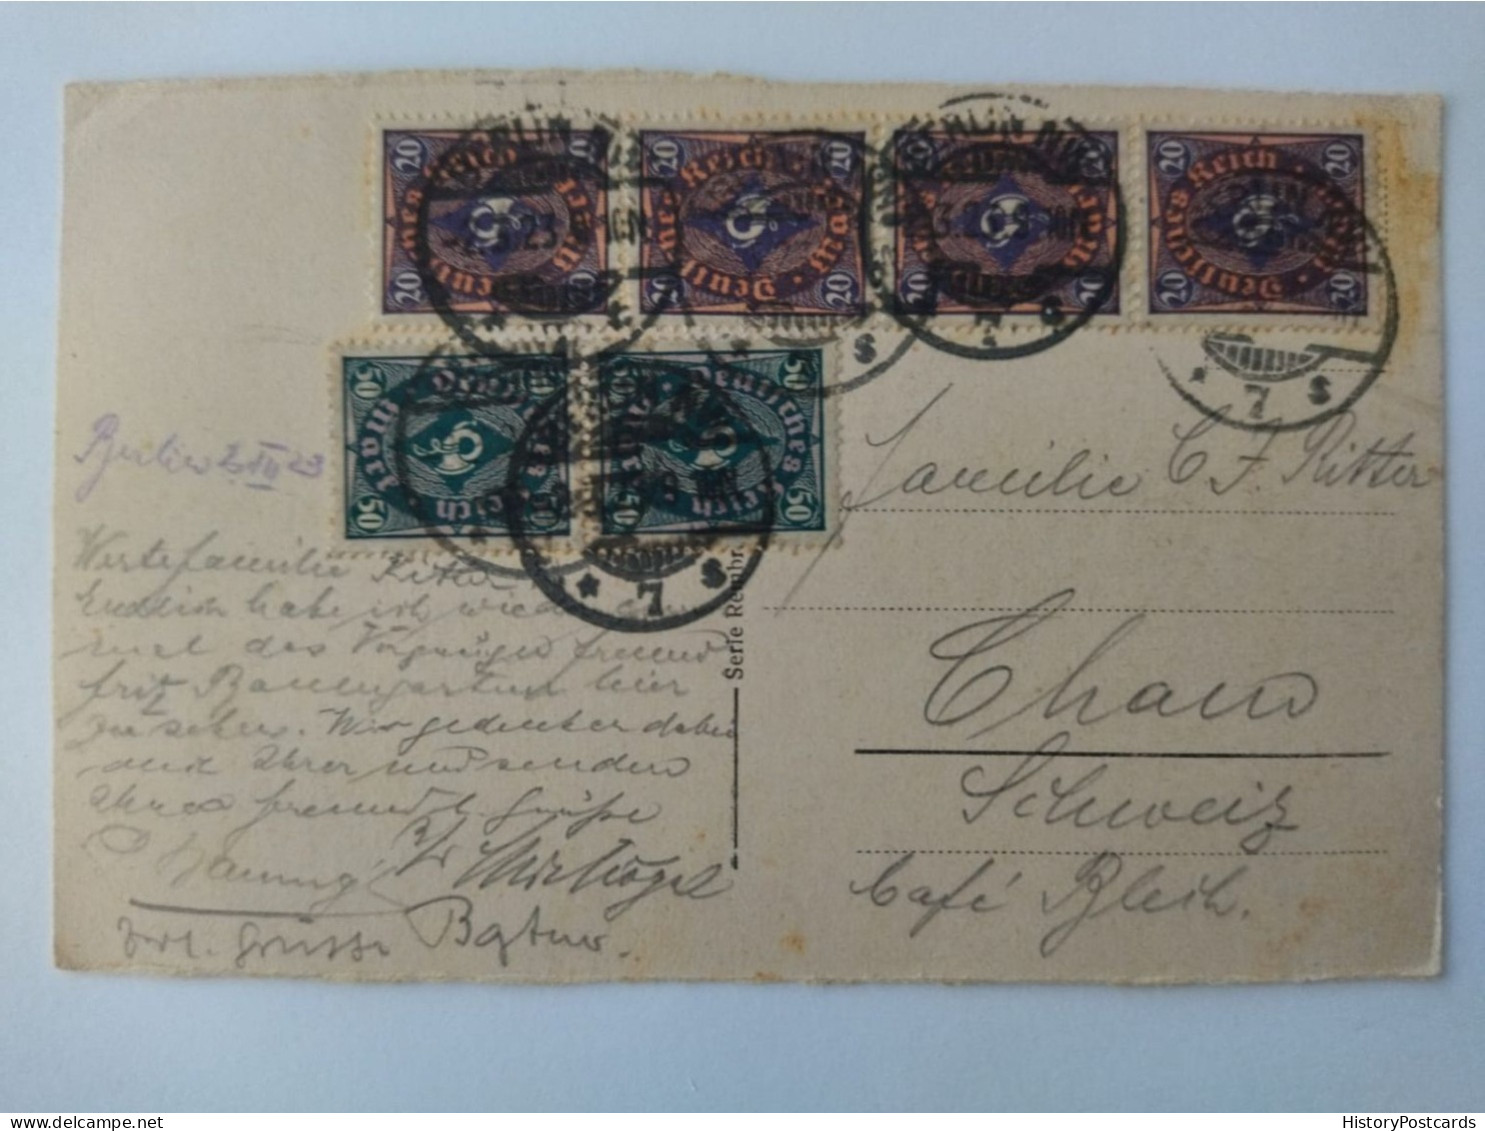 20 Deutsches Reich · Mark 20
20 Deutsches Reich · Mark 20
20 Deutsches Reich · Mark 20
20 Deutsches Reich · Mark 20
50 Deutsches Reich · Mark 50
50 Deutsches Reich · Mark 50
BERLIN NW
* 7 s
Berlin 2 III 23
Werte familie Ritter
Endlich habe ich wieder
mal das Vergnügen freund
fritz Baumgartner hier
zu sehen. Wir gedenken dabei
auch Ihrer und senden
Ihnen freundl. Grüße
Grüsse
Serie Rembr.
Familie C. F. Ritter
Cham
Schweiz
Café Bleich.
HistoryPostcards